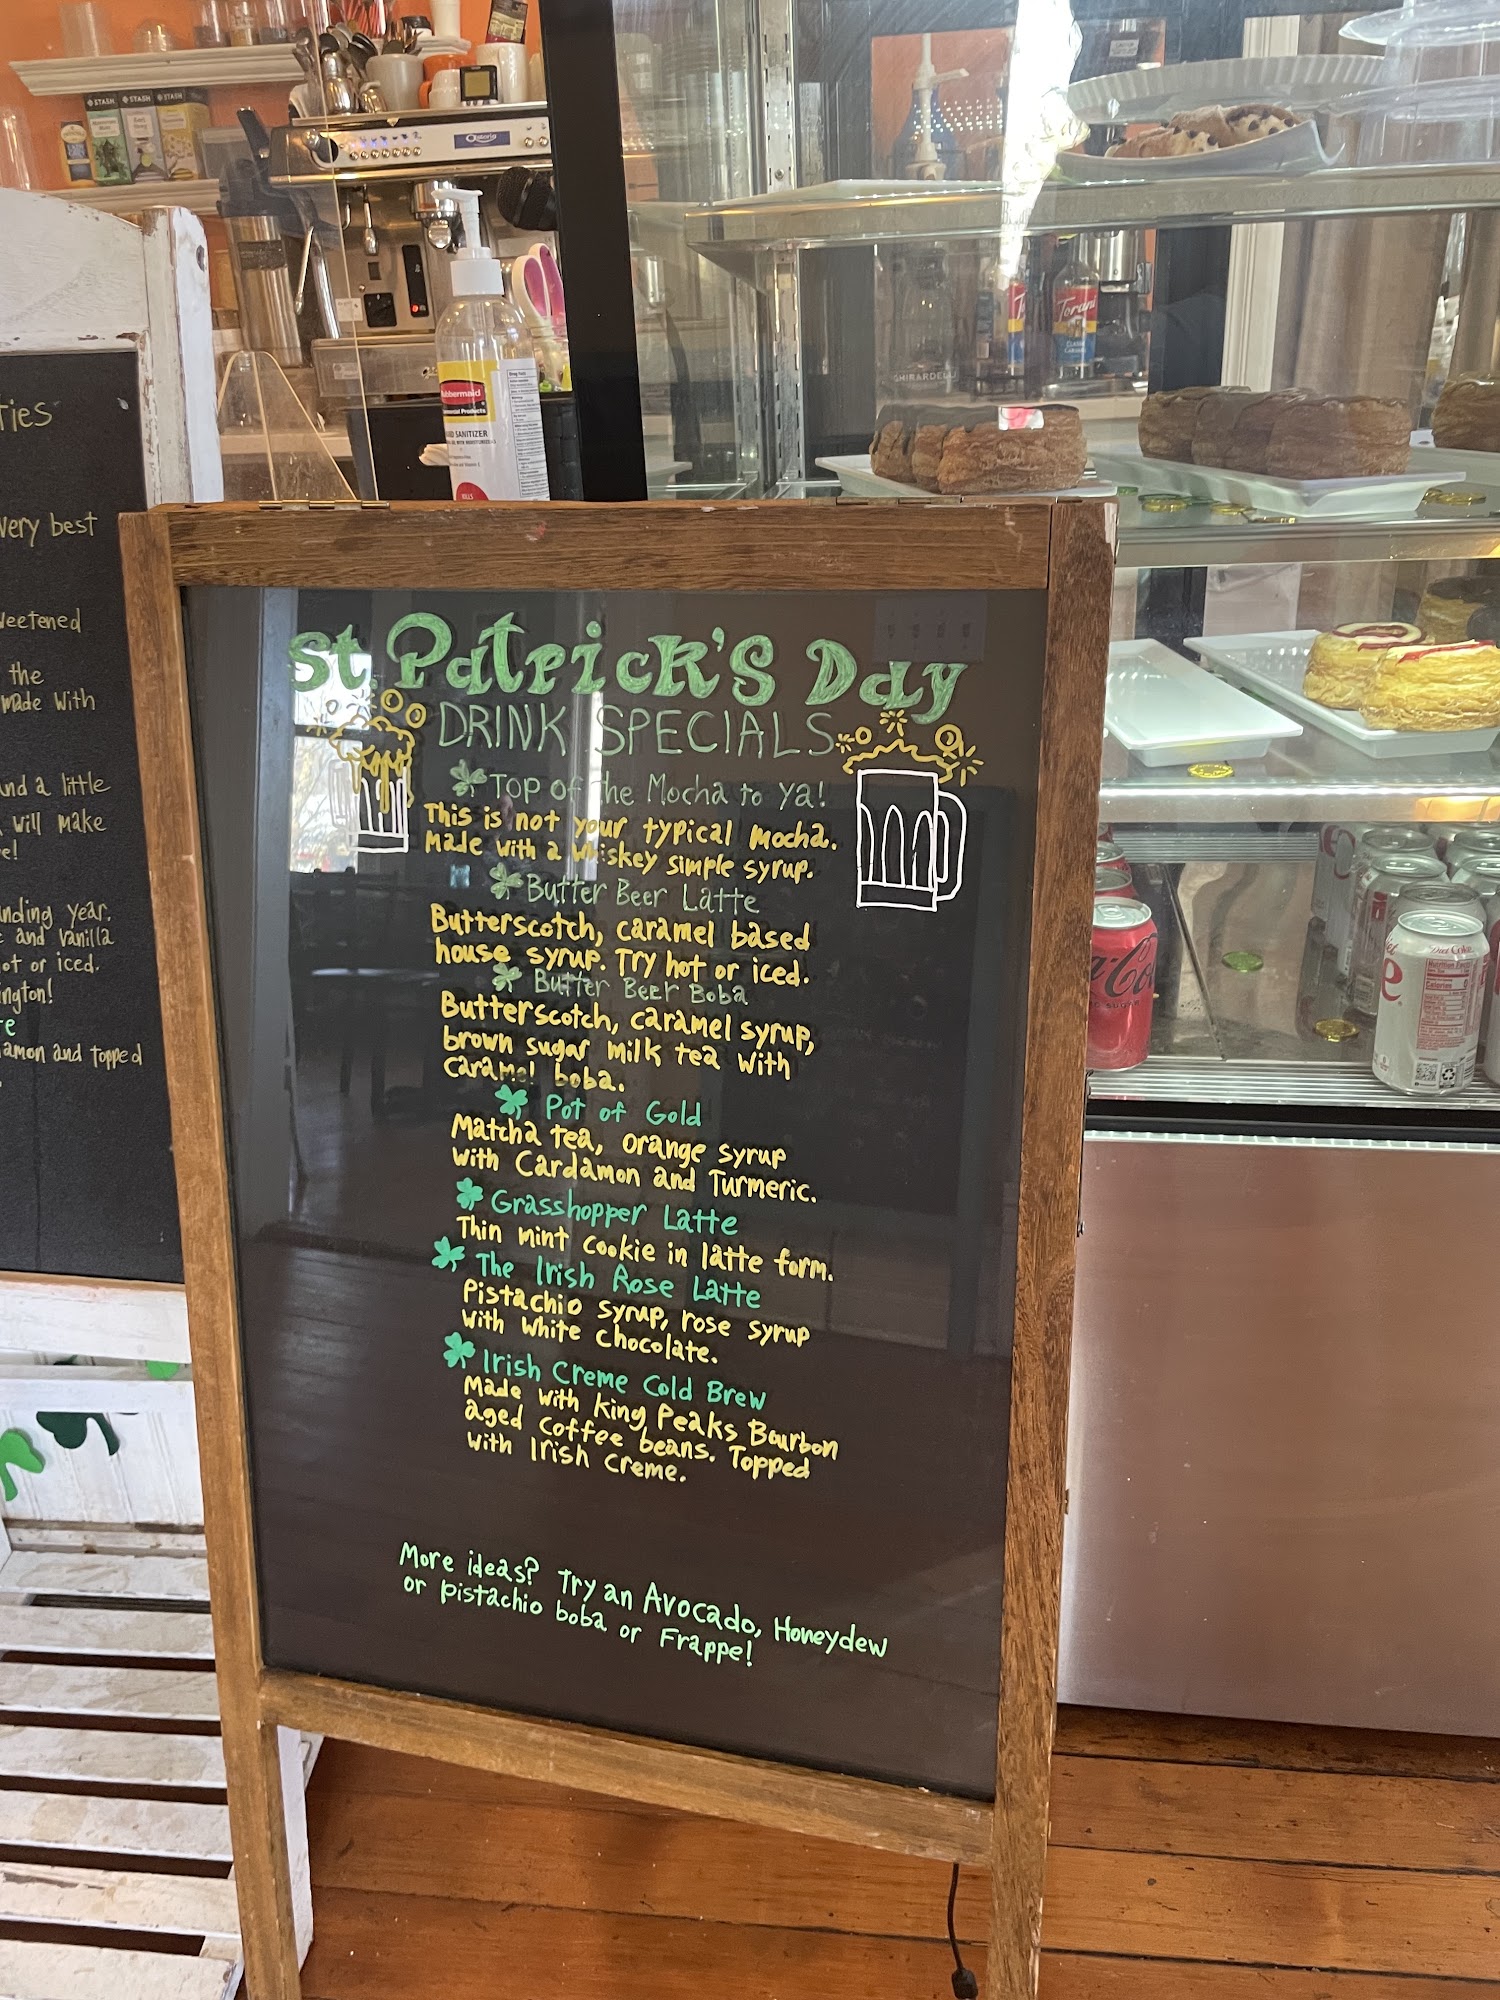 STASH
STASH
STASH
Astoria
Rubbermaid
Commercial Products
HAND SANITIZER
Torani
CLASSIC
CARAMEL
GHIRARDELLI
very best
the
made with
and a little
will make
and vanilla
or iced.
and topped
St Patrick's Day
DRINK SPECIALS
Top of the Mocha to ya!
This is not your typical mocha.
Made with a whiskey simple syrup.
Butter Beer Latte
Butterscotch, caramel based
house syrup. Try hot or iced.
Butter Beer Boba
Butterscotch, caramel syrup,
brown sugar milk tea with
caramel boba.
Pot of Gold
Matcha tea, orange syrup
with Cardamon and Turmeric.
Grasshopper Latte
Thin mint cookie in latte form.
The Irish Rose Latte
Pistachio syrup, rose syrup
with white chocolate.
Irish Creme Cold Brew
Made with King Peaks Bourbon
aged coffee beans. Topped
with Irish Creme.
More ideas? Try an Avocado, Honeydew
or pistachio boba or Frappe!
Diet Coke
Nutrition Facts
Calories 0